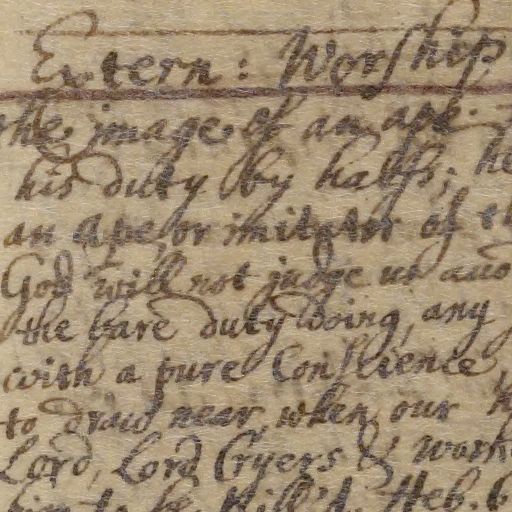 Extern: Worship
the image of an ape.
his duty by halfs; he
an ape or imitator of th
God will not judge us
the bare duty doing, any
with a pure Conscience
to draw near, when our
Lord, Lord Cryers & work
him to be kill'd. Heb. 6